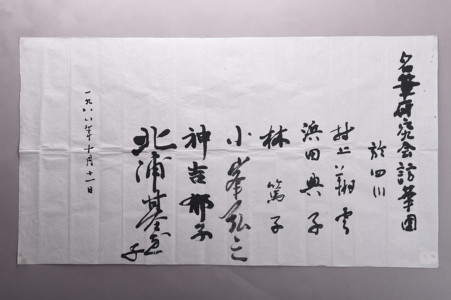 名筆研究会訪華団
於四川
村上翔雲
浜田典子
林篤子
小峯弘之
神吉郁子
北浦基恵子
一九八八年十月十一日